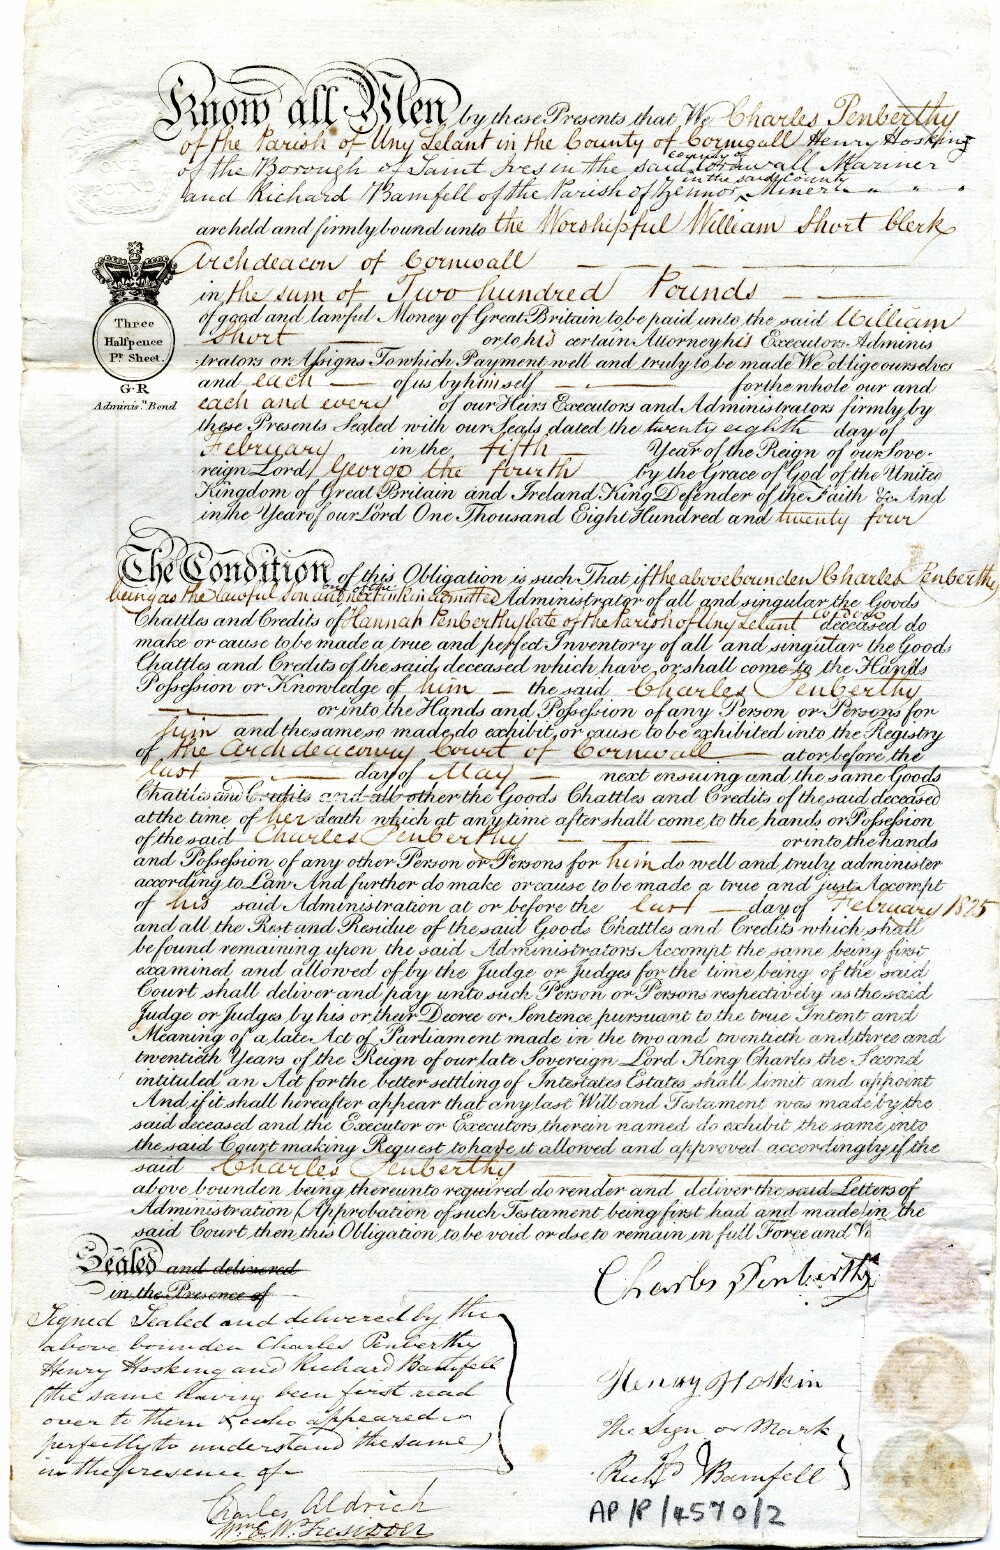 Know all Men by these Presents that We Charles Penberthy
of the Parish of Uny Lelant in the County of Cornwall Henry Hosking
of the Borough of Saint Ives in the said county of Cornwall Mariner
and Richard Bamfell of the Parish of Zennor in the said County Miner
are held and firmly bound unto the Worshipful William Short Clerk
Archdeacon of Cornwall
in the sum of Two hundred Pounds
of good and lawful Money of Great Britain to be paid unto the said William
Short or to his certain Attorney his Executors Adminis
trators or Assigns To which Payment well and truly to be made We oblige ourselves
and each of us by himself for the whole our and
each and every of our Heirs Executors and Administrators firmly by
these Presents Sealed with our Seals dated the twenty eighth day of
February in the fifth Year of the Reign of our Sove-
reign Lord George the fourth by the Grace of God of the United
Kingdom of Great Britain and Ireland King Defender of the Faith &c And
in the Year of our Lord One Thousand Eight Hundred and twenty four
Three
Halfpence
Pr. Sheet.
G R
Adminis.n Bond
The Condition of this Obligation is such That if the above bounden Charles Penberthy
being as the lawful son and next of kin admitted Administrator of all and singular the Goods
Chattles and Credits of Hannah Penberthy late of the Parish of Uny Lelant deceased do
make or cause to be made a true and perfect Inventory of all and singular the Goods
Chattles and Credits of the said deceased which have or shall come to the Hands
Possession or Knowledge of him the said Charles Penberthy
or into the Hands and Possession of any Person or Persons for
him and the same so made do exhibit or cause to be exhibited into the Registry
of the Archdeaconry Court of Cornwall at or before the
last day of May next ensuing and the same Goods
Chattles and Credits and all other the Goods Chattles and Credits of the said deceased
at the time of her death which at any time after shall come to the hands or Possession
of the said Charles Penberthy or into the hands
and Possession of any other Person or Persons for him do well and truly administer
according to Law And further do make or cause to be made a true and just Accompt
of his said Administration at or before the last day of February 1825
and all the Rest and Residue of the said Goods Chattles and Credits which shall
be found remaining upon the said Administrators Accompt the same being first
examined and allowed of by the Judge or Judges for the time being of the said
Court shall deliver and pay unto such Person or Persons respectively as the said
Judge or Judges by his or their Decree or Sentence pursuant to the true Intent and
Meaning of a late Act of Parliament made in the two and twentieth and three and
twentieth Years of the Reign of our late Sovereign Lord King Charles the Second
intituled an Act for the better settling of Intestates Estates shall limit and appoint
And if it shall hereafter appear that any last Will and Testament was made by the
said deceased and the Executor or Executors therein named do exhibit the same into
the said Court making Request to have it allowed and approved accordingly if the
said Charles Penberthy
above bounden being thereunto required do render and deliver the said Letters of
Administration (Approbation of such Testament being first had and made) in the
said Court then this Obligation to be void or else to remain in full Force and Vi
Sealed and delivered
in the Presence of
Signed Sealed and delivered by the
above bounden Charles Penberthy
Henry Hosking and Richard Bamfell
(the same having been first read
over to them & who appeared
perfectly to understand the same)
in the presence of
Charles Aldrich
Charles Penberthy
Henry Hoskin
The Sign or Mark
Richd Bamfell
AP/P/4570/2